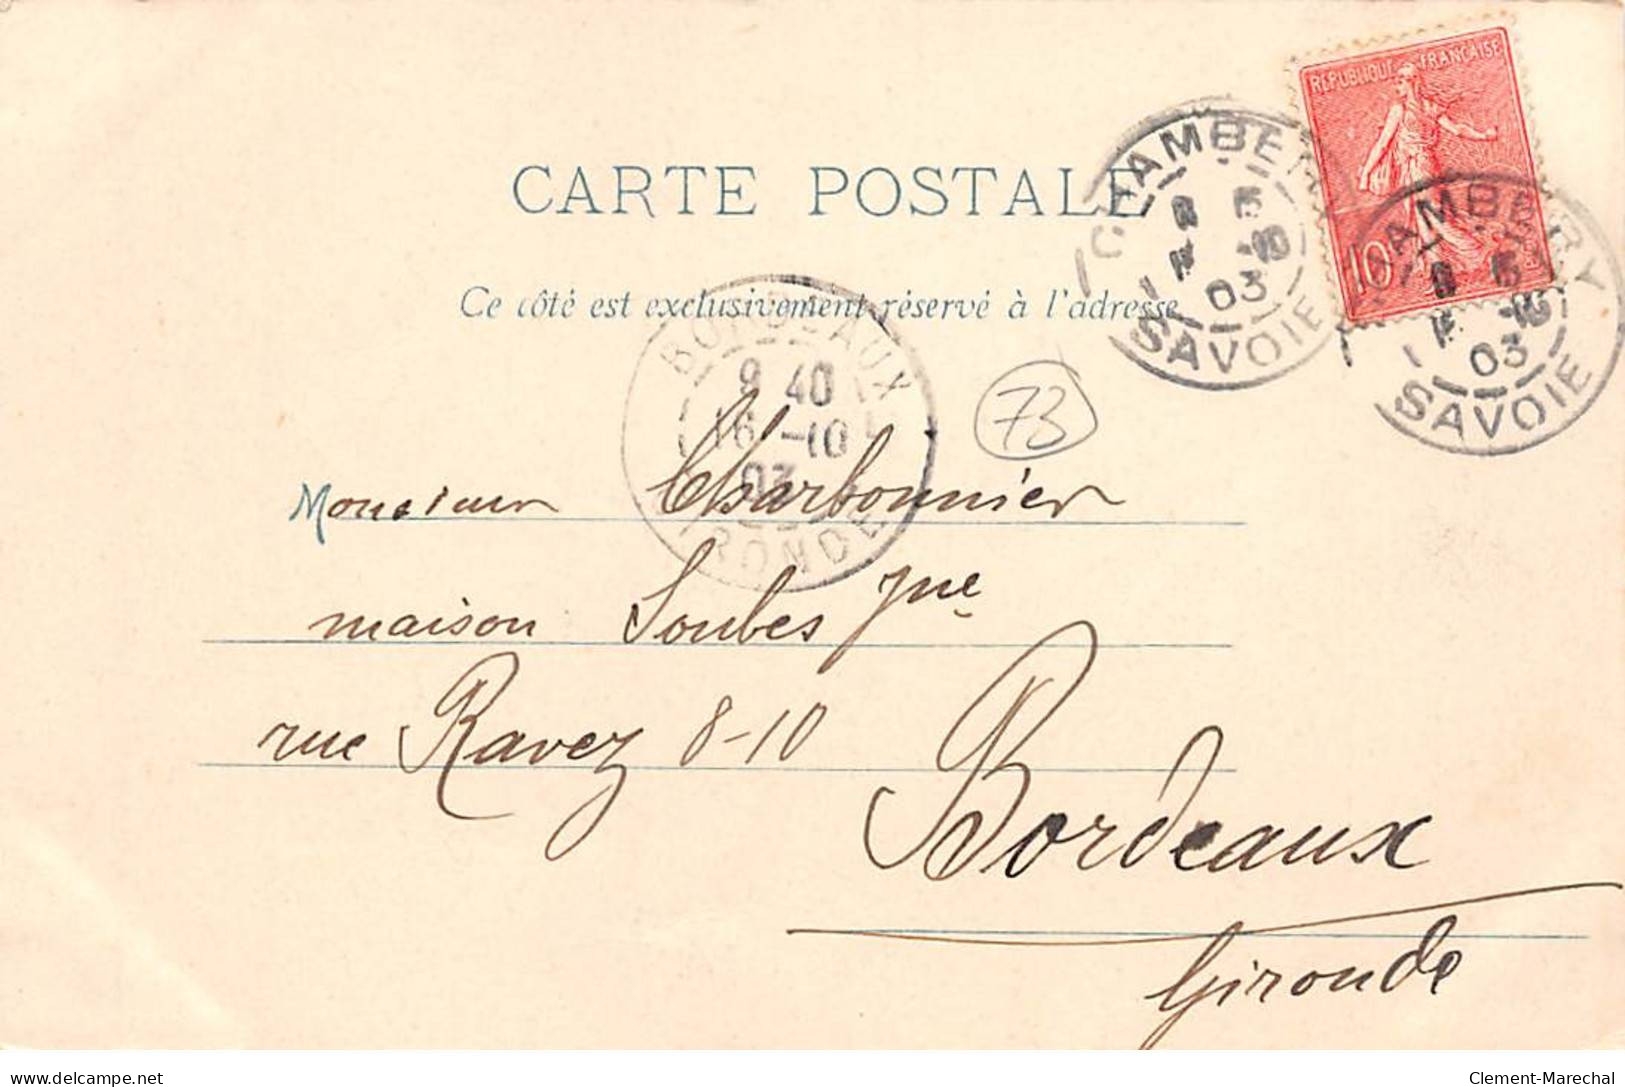 RÉPUBLIQUE FRANÇAISE
10
CHAMBERY
5
-10
03
SAVOIE
CHAMBERY
5
-10
03
SAVOIE
CARTE POSTALE
Ce côté est exclusivement réservé à l'adresse
BORDEAUX
9 40
16 -10
03
GIRONDE
73
Monsieur Charbonnier
maison Soubes jne
rue Ravez 8-10
Bordeaux
Gironde
delcampe.net
Clement-Marechal